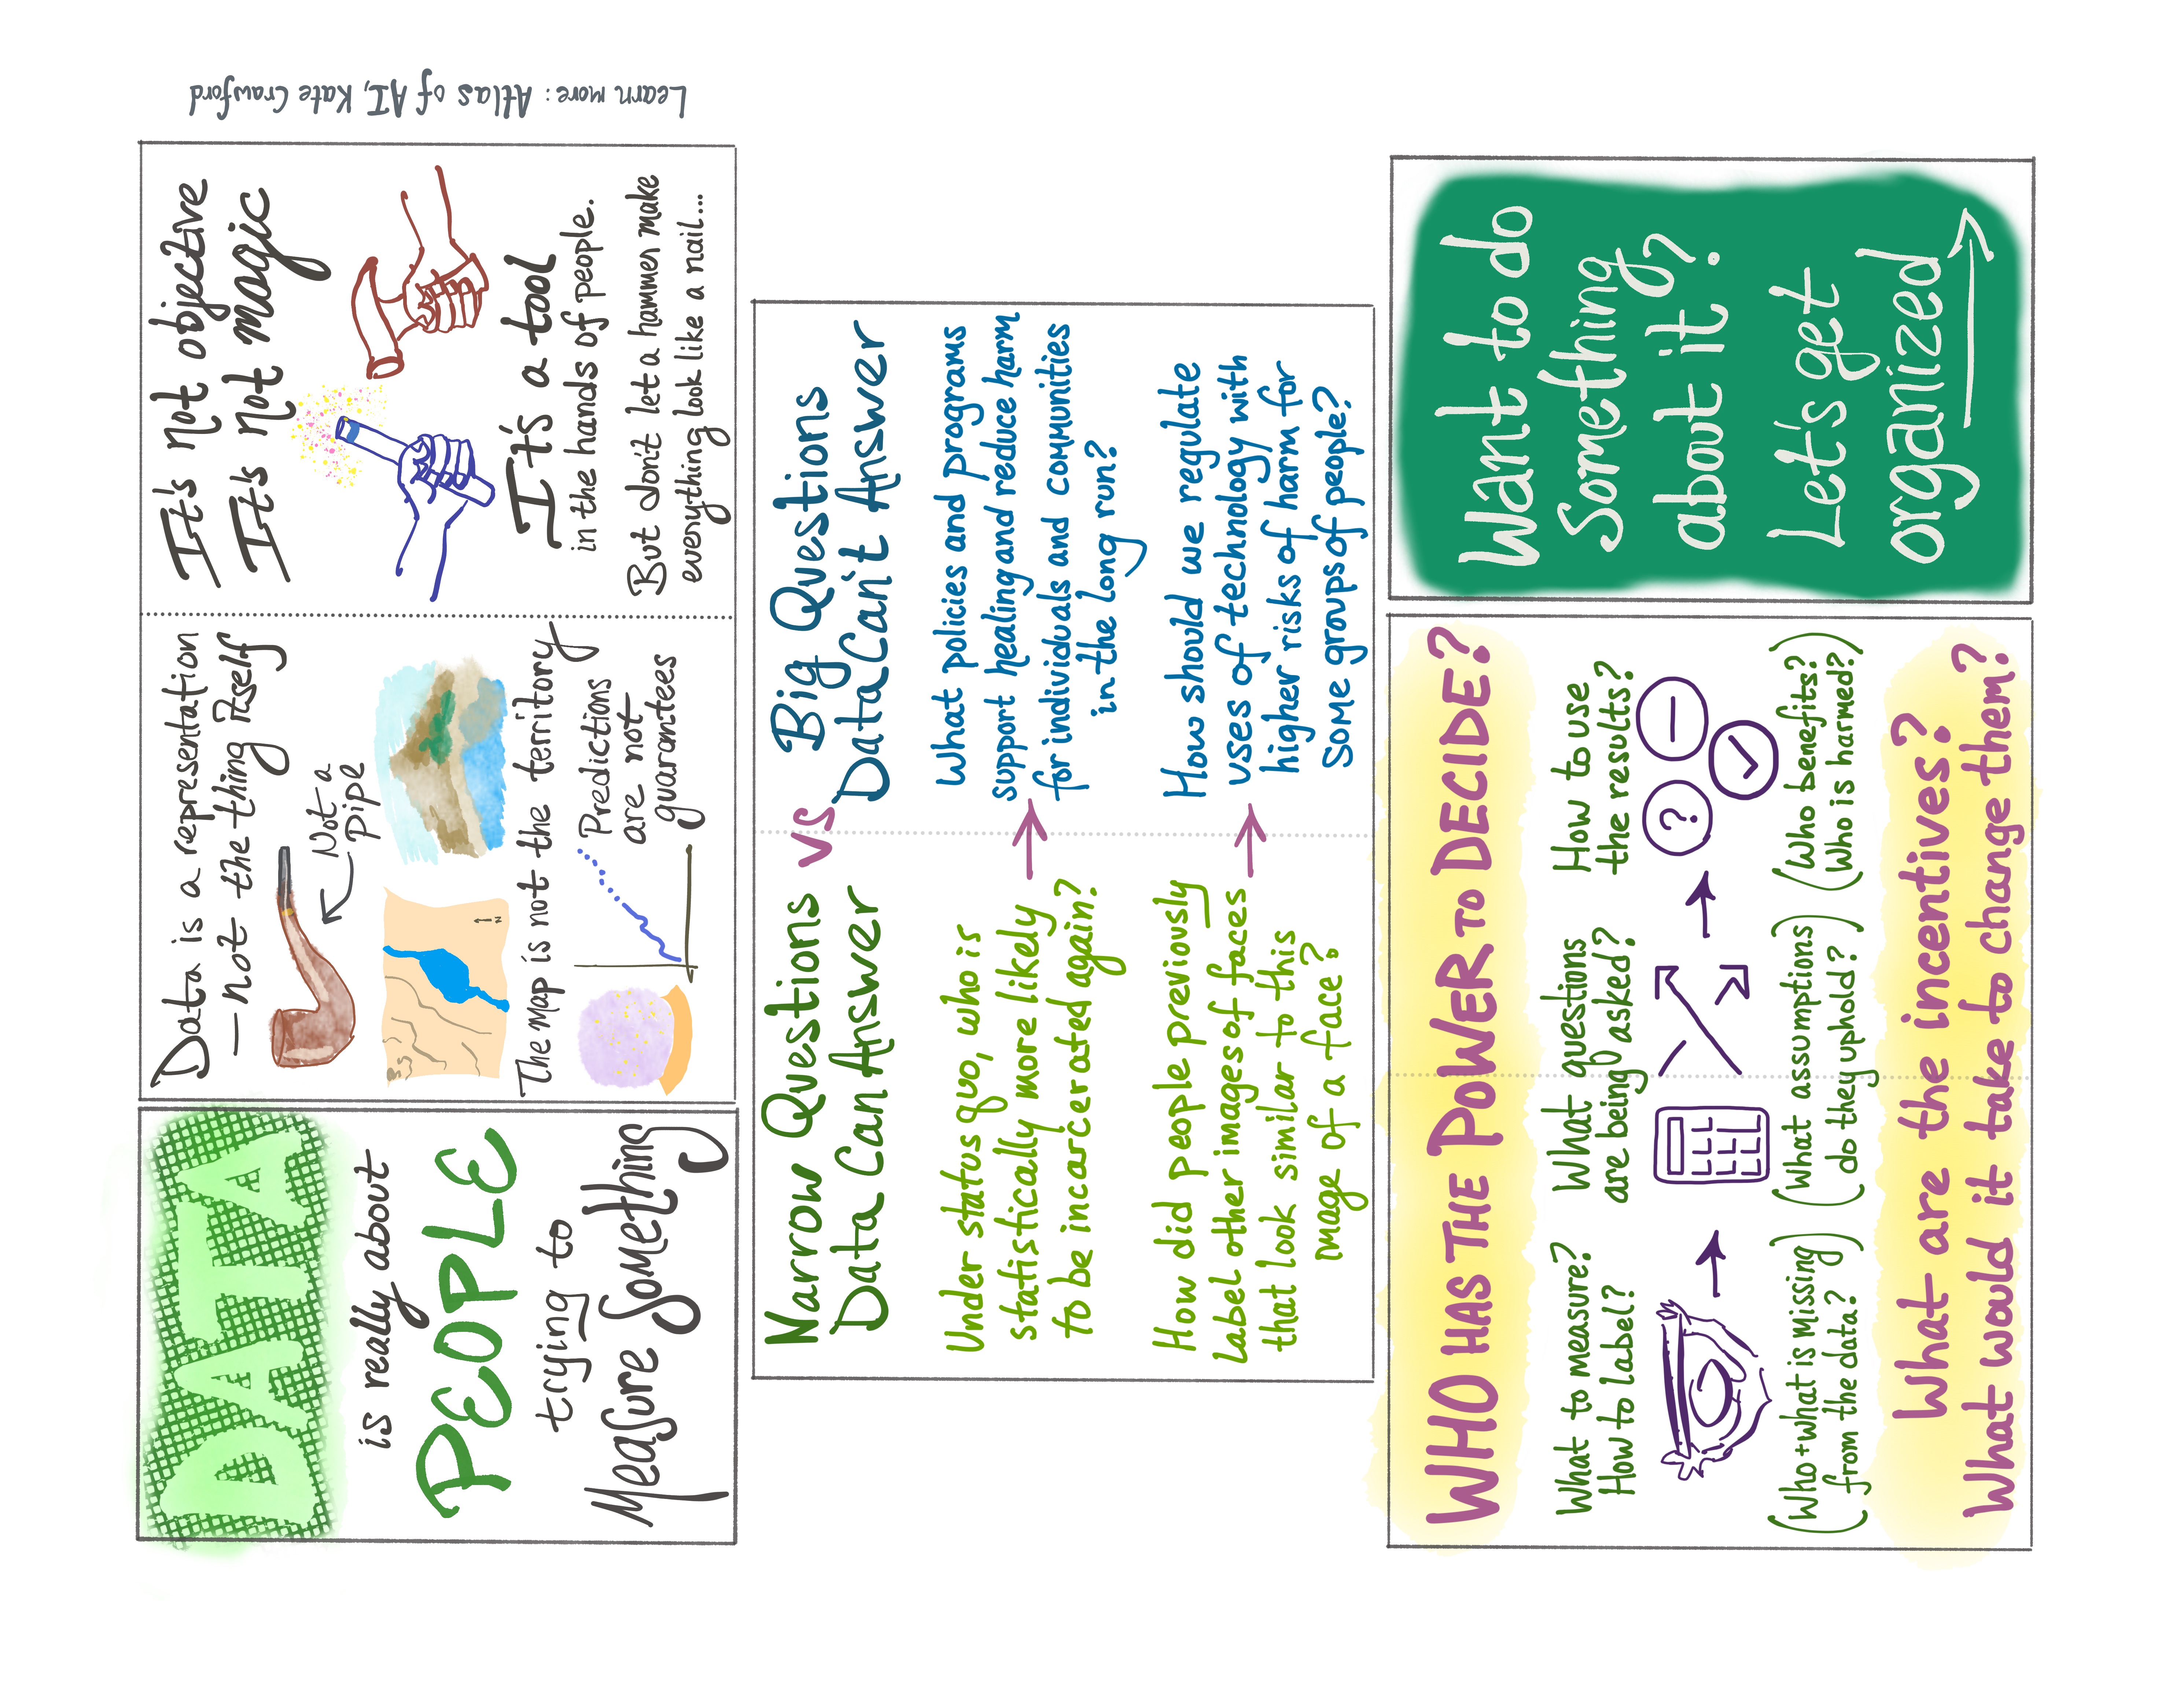 DATA
is really about
PEOPLE
trying to
Measure Something
Data is a representation
– not the thing itself
Not a
pipe
N
The map is not the territory
Predictions
are not
guarantees
It's not objective
It's not magic
It's a tool
in the hands of people.
But don't let a hammer make
everything look like a nail...
Learn more: Atlas of AI, Kate Crawford
Narrow Questions
Data Can Answer
vs
Big Questions
Data Can't Answer
Under status quo, who is
statistically more likely
to be incarcerated again?
What policies and programs
support healing and reduce harm
for individuals and communities
in the long run?
How did people previously
label other images of faces
that look similar to this
image of a face?
How should we regulate
uses of technology with
higher risks of harm for
some groups of people?
WHO HAS THE POWER TO DECIDE?
What to measure?
How to label?
(Who + what is missing
from the data?)
What questions
are being asked?
(What assumptions
do they uphold?)
How to use
the results?
?
(Who benefits?
Who is harmed?)
What are the incentives?
What would it take to change them?
Want to do
Something
about it?
Let's get
organized